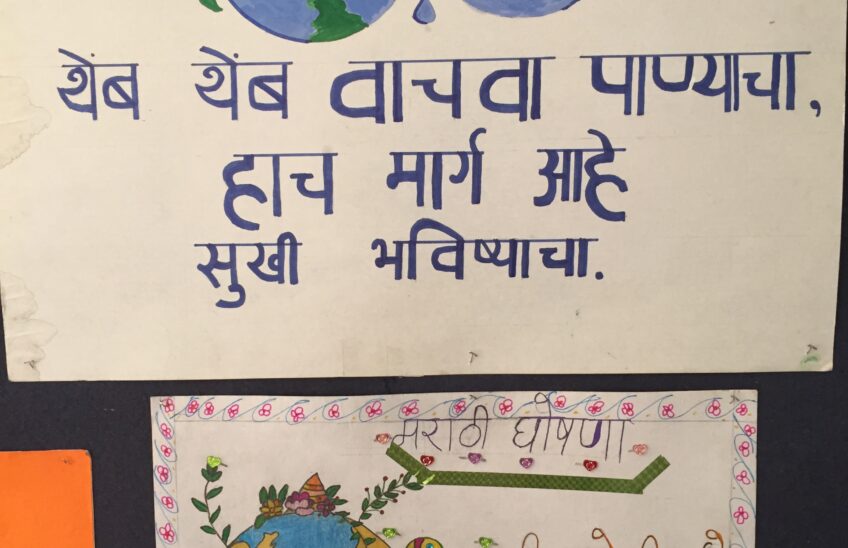 थेंब थेंब वाचवा पाण्याचा,
हाच मार्ग आहे
सुखी भविष्याचा.
मराठी घोषणा